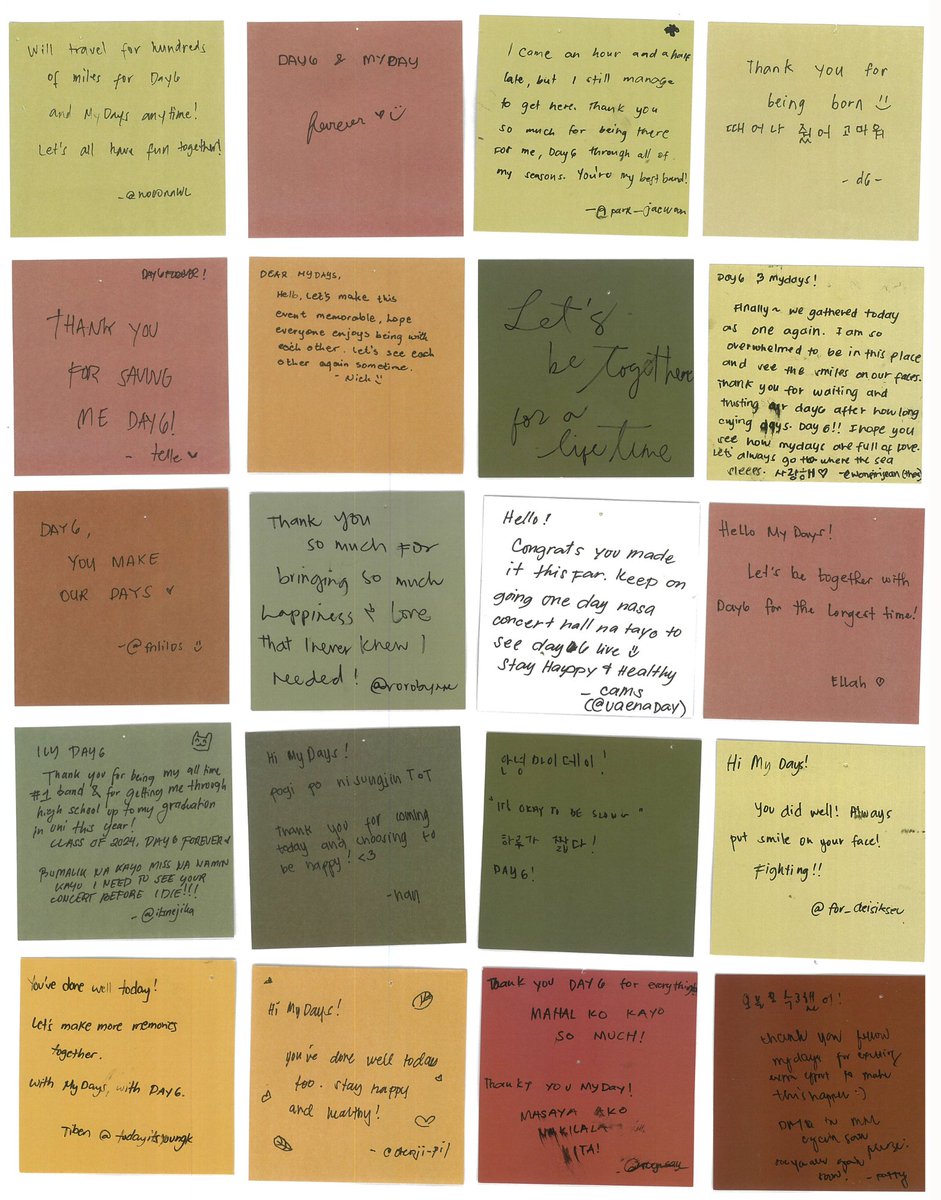 Will travel for hundreds
of miles for Day6
and MyDays anytime!
Let's all have fun together!
DAY6 & MYDAY
forever ♥
I came an hour and a half
late, but I still manage
to get here. Thank you
so much for being there
for me, Day6 through all of
my seasons. You're my best band!
-@park_jaewan
Thank you for
being born
때어나 줘어 고마워
- d6 -
DAY6 FOREVER!
THANK YOU
FOR SAVING
ME DAY6!
- telle
DEAR MYDAYS,
Hello, Let's make this
event memorable, hope
everyone enjoys being with
each other. Let's see each
other again sometime.
- Nick
Let's
be together
for a
lifetime
DAY6 & mydays!
Finally~ we gathered today
as one again. I am so
overwhelmed to be in this place
and see the smiles on our faces.
Thank you for waiting and
trusting our day6 after how long
crying days. Day6!! I hope you
see how mydays are full of love.
Let's always go to where the sea
sleeps. 사랑해♡
DAY6,
YOU MAKE
OUR DAYS
Thank you
so much for
bringing so much
happiness & love
that I never knew I
needed! @rorobynne
Hello!
Congrats you made
it this far. Keep on
going one day nasa
concert hall na tayo to
see day6 live
Stay Happy & Healthy
- cams
(@uaenaDay)
Hello My Days!
Let's be together with
Day6 for the longest time!
Ellah ♡
ILY DAY6
Thank you for being my all time
#1 band & for getting me through
high school up to my graduation
in uni this year!
CLASS OF 2024, DAY6 FOREVER
BUMALIK NA KAYO MISS NA NAMIN
KAYO I NEED TO SEE YOUR
CONCERT BEFORE I DIE!!!
- @itsnejika
Hi My Days!
pogi po ni sungjin ToT
Thank you for coming
today and choosing to
be happy! <3
-nan
안녕 마이데이!
"It's OKAY TO BE SLOW"
하루가 짧다!
DAY6!
Hi My Days!
You did well! Always
put smile on your face!
Fighting!!
@for_deisikseu
You've done well today!
Let's make more memories
together.
With MyDays, with DAY6.
Tiben @todayitsyoungk
Hi My Days!
you've done well today
too. stay happy
and healthy!
Thank you DAY6 for everything!
MAHAL KO KAYO
SO MUCH!
Thank you MYDAY!
MASAYA AKO
NAKILALA
KITA!
thank you fellow
mydays for exerting
extra effort to make
this happen :)
see ya all again
soon!